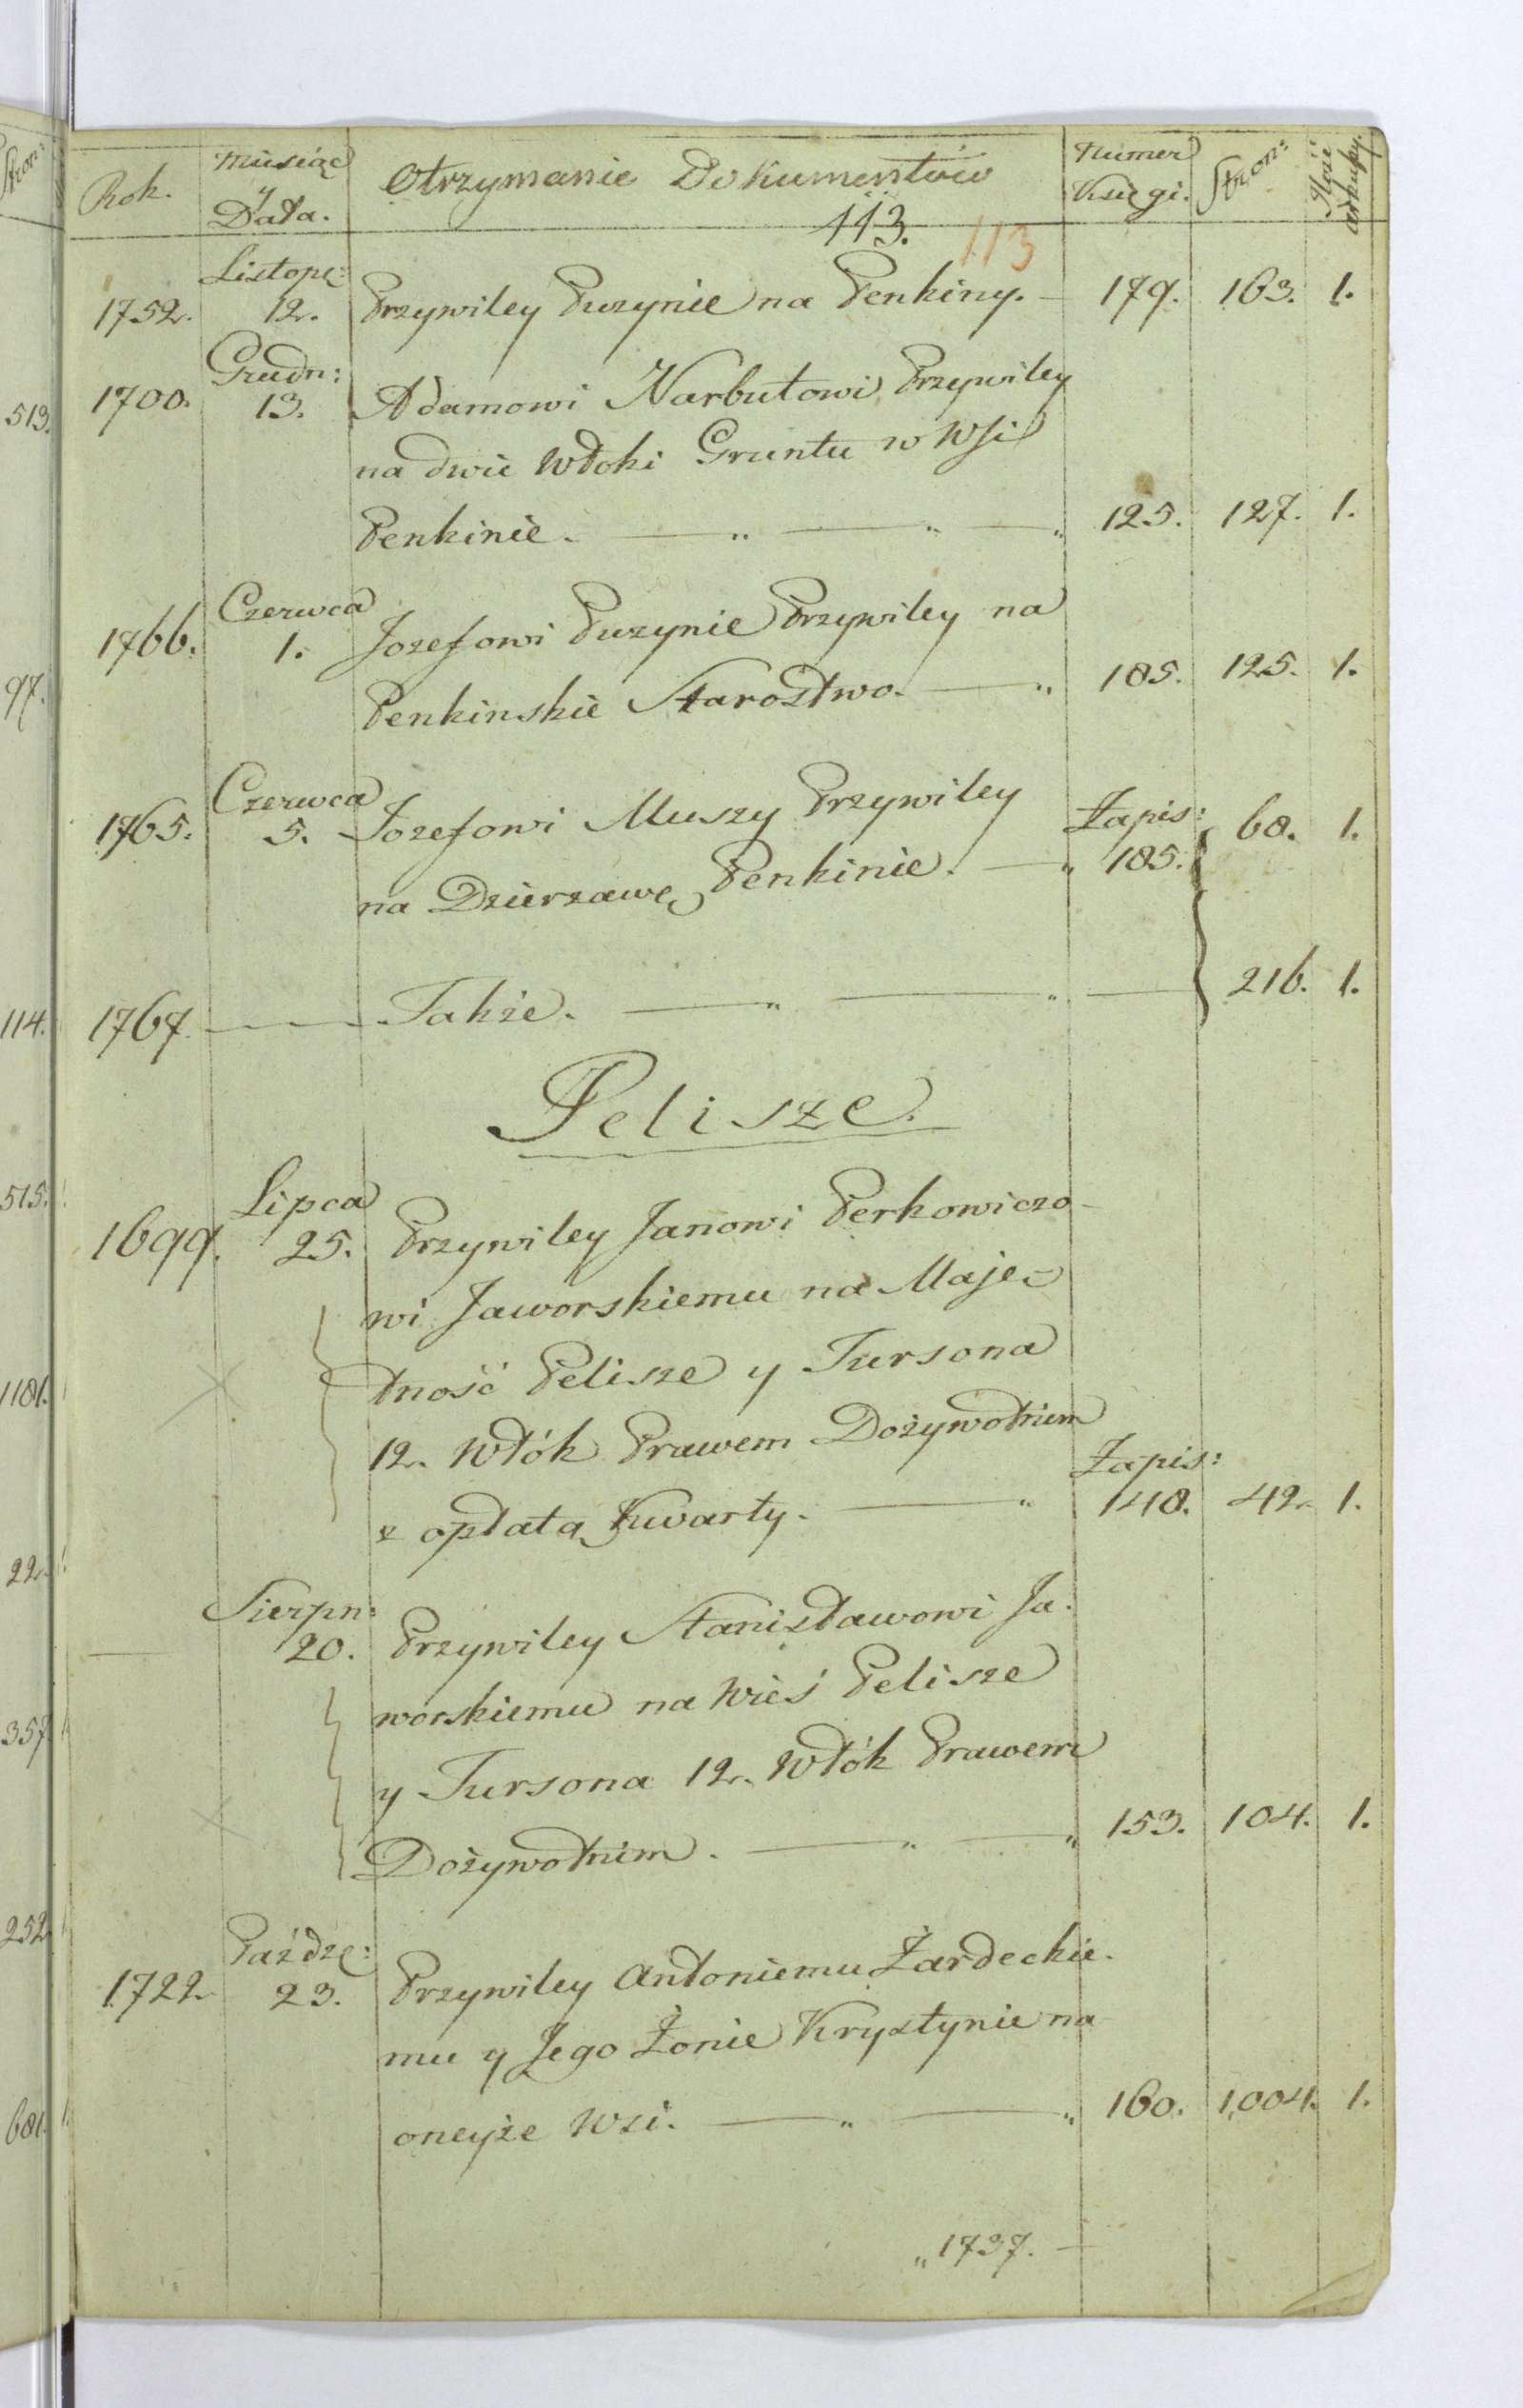 Stron:
Rok.
Miesiąc
y
Data.
Otrzymanie Dokumentów
Numer
Księgi.
Stron:
Ilość
arkuszy.
113.
113
Listopa:
1752. 12. Przywiley Puzynie na Penkiny. — 179. 163. 1.
Grudn:
1700. 13. Adamowi Narbutowi Przywiley
na dwie Włoki Gruntu w Wsi
Penkinie. — „ — „ — „ 125. 127. 1.
Czerwca
1766. 1. Jozefowi Puzynie Przywiley na
Penkinskie Starostwo. — „ 185. 125. 1.
Czerwca
1765. 5. Jozefowi Muszy Przywiley Zapis: 68. 1.
na Dzierzawę Penkinie. — „ 185.
1767 — Także. — „ — „ — 216. 1.
Pelisze.
Lipca
1699. 25. Przywiley Janowi Perkowiczo-
wi Jaworskiemu na Maję-
tność Pelisze y Tursona
12. Włók Prawem Dożywotniem
z opłatą Kwarty. — „ Zapis: 148. 42. 1.
Sierpn:
— 20. Przywiley Stanisławowi Ja-
worskiemu na Wieś Pelisze
y Tursona 12. Włók Prawem
Dożywotnim. — „ — „ 153. 104. 1.
Paźdz:
1722. 23. Przywiley Antoniemu Żardeckie-
mu y Jego Żonie Krystynie na
oneyże Wsi. — „ — „ 160. 1,004. 1.
„1737. —
513.
97.
114.
515.
1181.
22.
357
252
681.